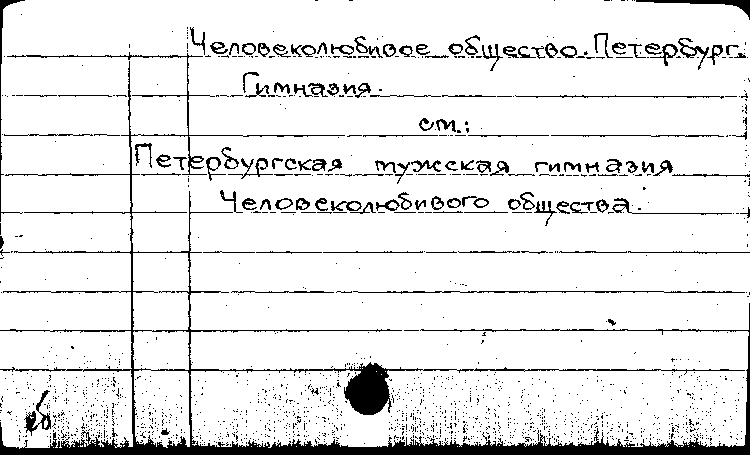 Человеколюбивое общество. Петербург.
Гимназия.
см.:
Петербургская мужская гимназия
Человеколюбивого общества.